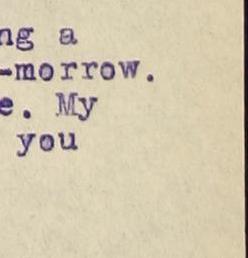 ng a
-morrow.
e. My
you